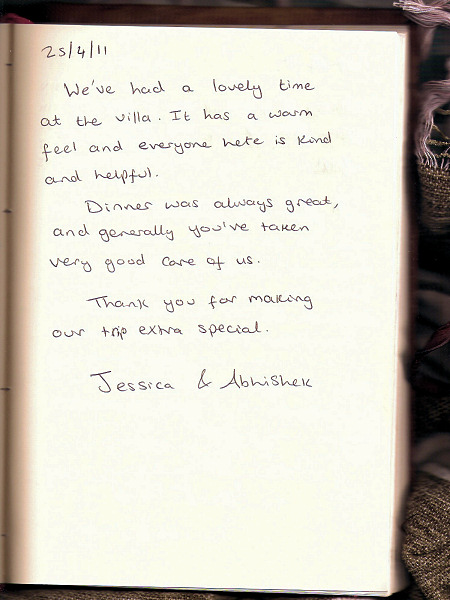 25/4/11
We've had a lovely time
at the villa. It has a warm
feel and everyone here is kind
and helpful.
Dinner was always great,
and generally you've taken
very good care of us.
Thank you for making
our trip extra special.
Jessica & Abhishek